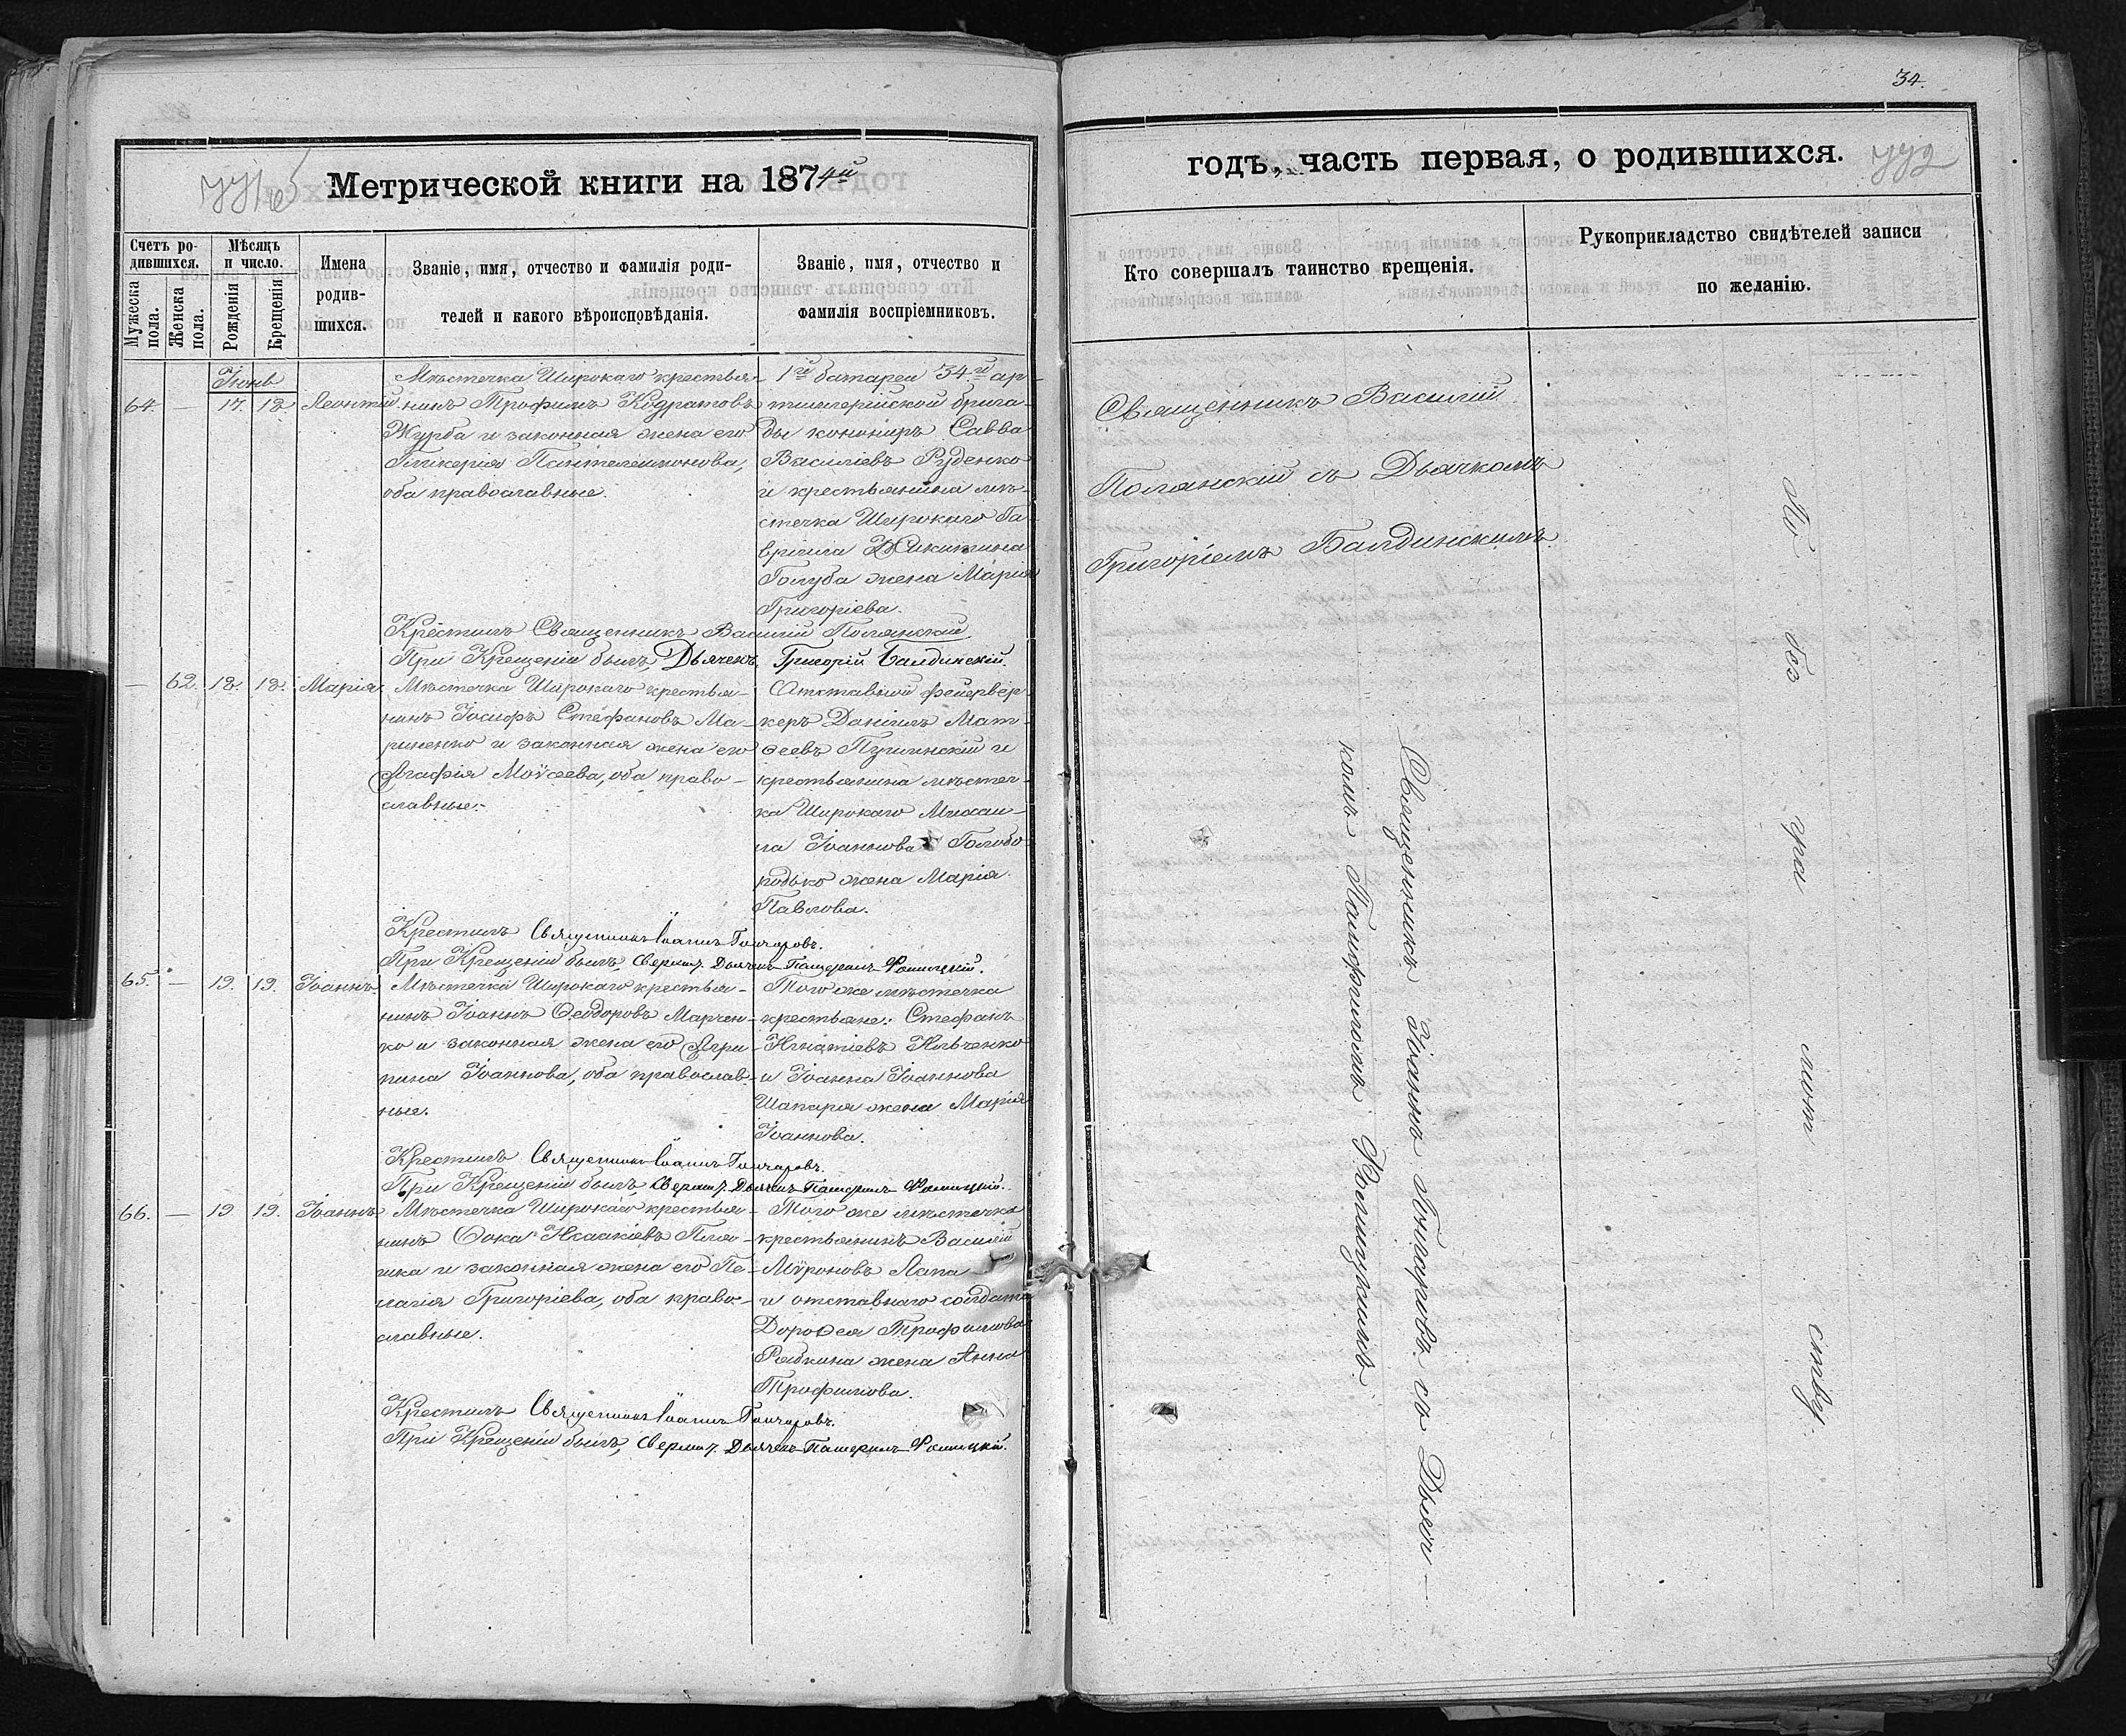 34.
771об
Метрической книги на 1874й
годъ, часть первая, о родившихся.
772
Счетъ ро-
дившихся.
Мужеска
пола.
Женска
пола.
Мѣсяцъ
и число.
Рожденія
Крещенія
Имена
родив-
шихся.
Званіе, имя, отчество и фамилія роди-
телей и какого вѣроисповѣданія.
Званіе, имя, отчество и
фамилія воспріемниковъ.
Кто совершалъ таинство крещенія.
Рукоприкладство свидѣтелей записи
по желанію.
Іюнь
64. — 17. 18. Леонтій
Мѣстечка Широкаго крестья-
нинъ Трофимъ Кодратовъ
Журба и законная жена его
Гликерія Пантелеимонова,
оба православные.
1й батареи 34й ар-
тиллерійской брига-
ды кононіръ Савва
Василіевъ Руденко
и крестьянина мѣ-
стечка Широкаго Га-
вріила Никитина
Голуба жена Марія
Григоріева.
Крестилъ Священникъ Василій Полянскій
При Крещеніи былъ Дьячекъ Григорій Балдинскій.
— 62. 18. 18. Марія
Мѣстечка Широкаго крестья-
нинъ Іосифъ Стефановъ Ма-
риненко и законная жена его
Агафія Моѵсеева, оба право-
славные.
Отставной фейервер-
керъ Даніилъ Мат-
ѳеевъ Пушинскій и
крестьянина мѣстеч-
ка Широкаго Михаи-
ла Іоаннова Голобо-
родько жена Марія
Павлова.
Крестилъ Священникъ Іоаннъ Гончаровъ.
При Крещеніи былъ, Сверхшт. Дьячекъ Памфилъ
65. — 19. 19. Іоаннъ
Мѣстечка Широкаго крестья-
нинъ Іоаннъ Ѳеодоровъ Марчен-
ко и законная жена его Агри-
пина Іоаннова, оба православ-
ные.
Того же мѣстечка
крестьяне: Стефанъ
Игнатіевъ Ильченко
и Іоанна Іоаннова
Шапаря жена Марія
Іоаннова.
Крестилъ Священникъ Іоаннъ Гончаровъ.
При Крещеніи былъ, Сверхшт. Дьячекъ Памфилъ
66. — 19 19. Іоаннъ
Мѣстечка Широкаго крестья-
нинъ Ѳока Исаакіевъ
и законная жена его Пе-
лагія Григоріева, оба право-
славные.
Того же мѣстечка
крестьянинъ Василій
Мѵроновъ Лапа
и отставнаго солдата
Дороѳея Трофимова
Рябкина жена Анна
Трофимова.
Крестилъ Священникъ Іоаннъ Гончаровъ.
При Крещеніи былъ, Сверхшт. Дьячекъ Памфилъ
Священникъ Василій
Полянскій съ Дьячкомъ
Григоріемъ Балдинскимъ.
Священникъ Іоаннъ Гончаровъ съ Дьяч-
комъ Памфиломъ
По без гра мот ству.